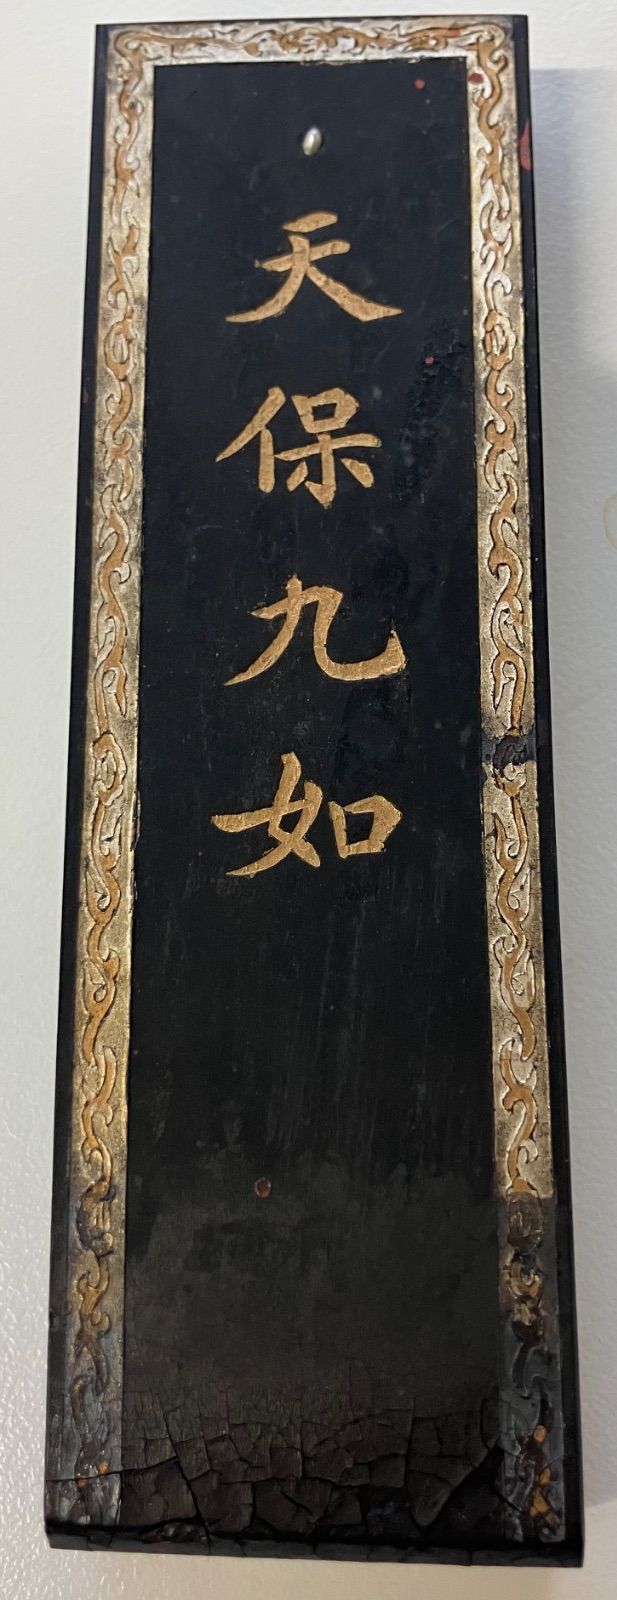 天保九如